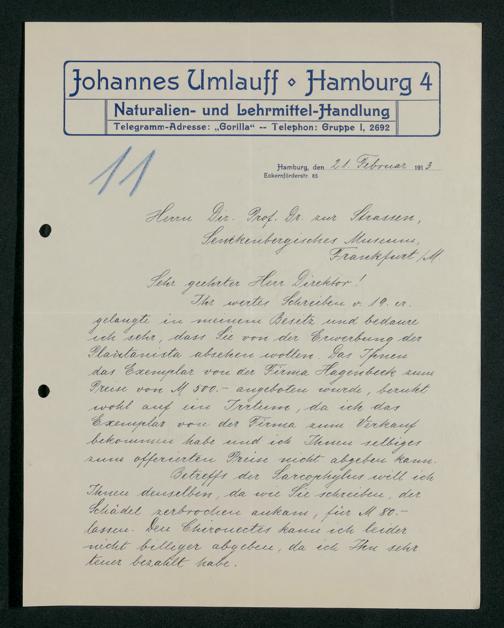 Johannes Umlauff ⋄ Hamburg 4
Naturalien- und Lehrmittel-Handlung
Telegramm-Adresse: „Gorilla“ -- Telephon: Gruppe I, 2692
11
Hamburg, den 21. Februar 1913
Eckernförderstr. 85
Herrn Dir. Prof. Dr. zur Strassen,
Senckenbergisches Museum,
Frankfurt /M
Sehr geehrter Herr Direktor!
Ihr wertes Schreiben v. 19. cr.
gelangte in meinem Besitz und bedaure
ich sehr, dass Sie von der Erwerbung der
Platanista absehen wollen. Das Ihnen
das Exemplar von der Firma Hagenbeck zum
Preise von M 500.- angeboten wurde, beruht
wohl auf ein Irrtum, da ich das
Exemplar von der Firma zum Verkauf
bekommen habe und ich Ihnen selbiges
zum offerierten Preise nicht abgeben kann.
Betreffs der Sarcophylus will ich
Ihnen denselben, da wie Sie schreiben, der
Schädel zerbrochen ankam, für M 80.-
lassen. Den Chironectes kann ich leider
nicht billiger abgeben, da ich Ihn sehr
teuer bezahlt habe.